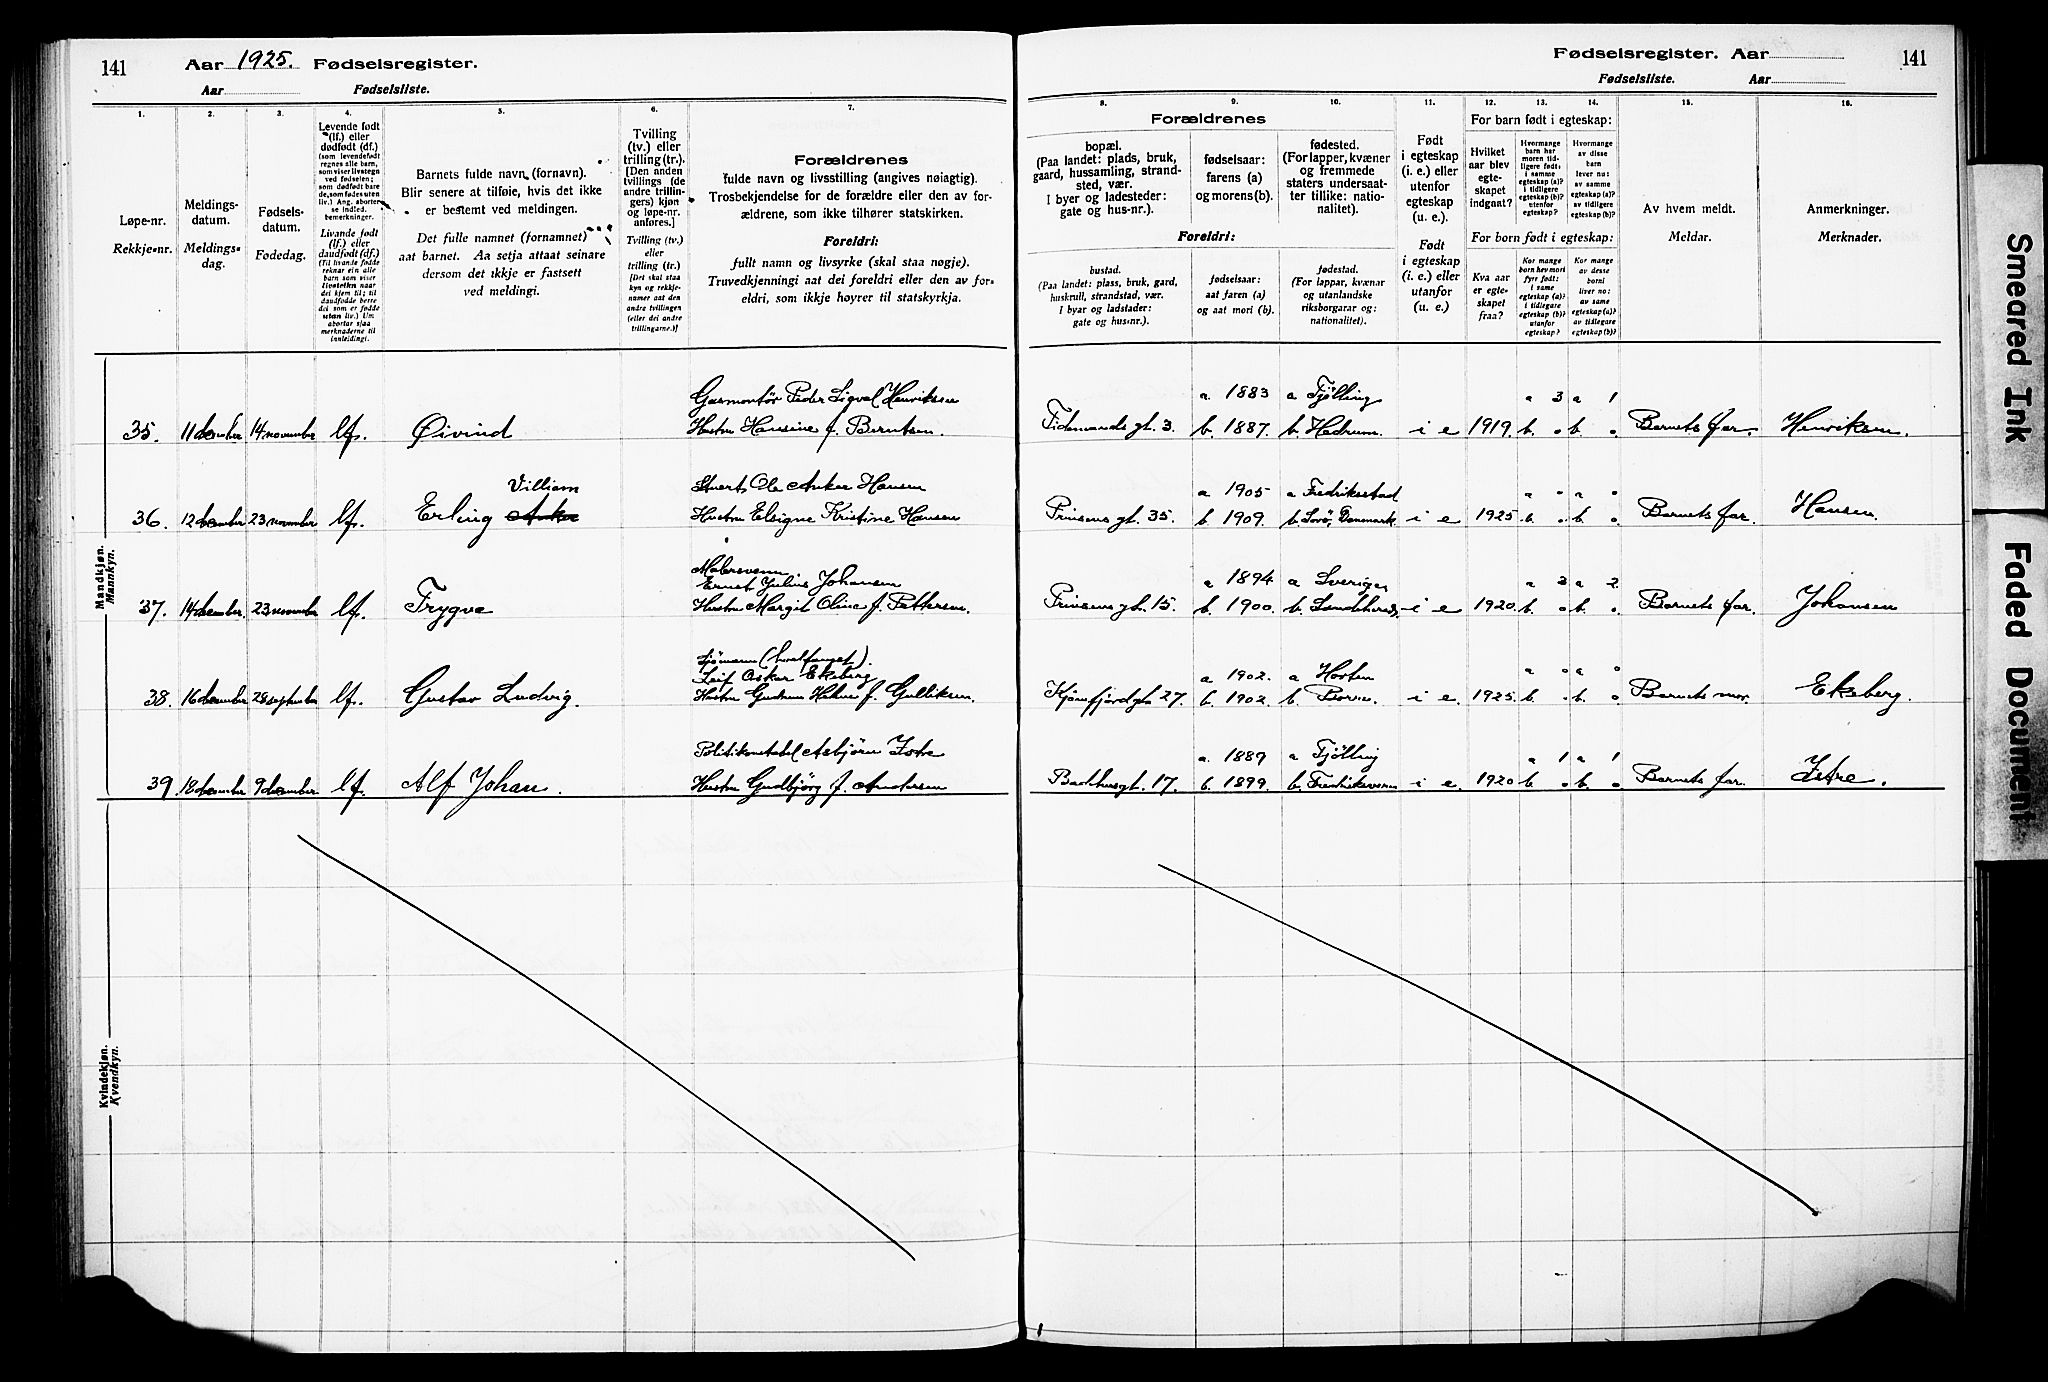 141
Aar 1925. Fødselsregister.
Aar Fødselsliste.
Fødselsregister. Aar
Fødselsliste. Aar
141
1.
Løpe-nr.
Rekkje-nr.
2.
Meldings-
datum.
Meldings-
dag.
3.
Fødsels-
datum.
Fødedag.
4.
Levende født
(lf.) eller
dødfødt (df.)
(som levendefødt
regnes alle barn,
som viser livstegn
ved fødselen;
som dødfødt bare
de, som fødes uten
liv.) Ang. aborter
se indled.
bemerkninger.
Livande født
(lf.) eller
daudfødt (df.)
(Til livande fødde
reknar ein alle
barn som viser
livsteikn naar
dei kjem til; til
daudfødde berre
dei som er fødde
utan liv.) Um
abortar sjaa
merknaderne til
innleidingi.
5.
Barnets fulde navn (fornavn).
Blir senere at tilføie, hvis det ikke
er bestemt ved meldingen.
Det fulle namnet (fornamnet)
aat barnet. Aa setja attaat seinare
dersom det ikkje er fastsett
ved meldingi.
6.
Tvilling
(tv.) eller
trilling (tr.).
[Den anden
tvillings (de
andre trillin-
gers) kjøn
og løpe-nr.
anføres.]
Tvilling (tv.)
eller
trilling (tr.)
[Det skal staa
kyn og rekkje-
numer aat den
andre tvillingen
(eller dei andre
trillingarne.)]
7.
Forældrenes
fulde navn og livsstilling (angives nøiagtig).
Trosbekjendelse for de forældre eller den av for-
ældrene, som ikke tilhører statskirken.
Foreldri:
fullt namn og livsyrke (skal staa nøgje).
Truvedkjenningi aat dei foreldri eller den av for-
eldri, som ikkje høyrer til statskyrkja.
8.
9.
10.
Forældrenes
bopæl.
(Paa landet: plads, bruk,
gaard, hussamling, strand-
sted, vær.
I byer og ladesteder:
gate og hus-nr.).
fødselsaar:
farens (a)
og morens (b).
fødested.
(For lapper, kvæner
og fremmede
staters undersaat-
ter tillike: natio-
nalitet).
Foreldri:
bustad.
(Paa landet: plass, bruk, gard,
huskrull, strandstad, vær.
I byar og ladstader:
gate og hus-nr.).
fødselsaar:
aat faren (a)
og aat mori (b).
fødestad.
(For lappar, kvænar
og utanlandske
riksborgarar og:
nationalitet).
11.
Født
i egteskap
(i. e.) eller
utenfor
egteskap
(u. e.).
Født
i egteskap
(i. e.) eller
utanfor
(u. e.)
12.
13.
14.
For barn født i egteskap:
Hvilket
aar blev
egte-
skapet
indgaat?
Hvormange
barn har
moren tid-
ligere født:
i samme
egteskap (a)?
i tidligere
egteskap (b)?
utenfor
egteskap?
Hvormange
av disse
barn
lever nu:
av samme
egteskap (a)?
av tidligere
egteskap (b)?
For born født i egteskap:
Kva aar
er egte-
skapet
fraa?
Kor mange
born hev mori
fyrr født:
i same
egteskap (a)?
i tidlegare
egteskap (b)?
utanfor
egteskap?
Kor mange
av desse
borni
liver no:
av same
egteskap (a)?
av tidlegare
egteskap (b)?
15.
Av hvem meldt.
Meldar.
16.
Anmerkninger.
Merknader.
Mandkjøn.
Mannkyn.
Gasmontør Peder Sigval Henriksen a 1883 a Tjølling a 3 a 1
35. 11 desember 14 november lf. Øivind Hustru Hansine f. Berntsen Tidemands gt. 3. b. 1887. b. Hedrum. i e 1919. b. " b. " Barnets far. Henriksen.
Villiam Ole Anker Hansen a 1905 a Fredriksstad a " a "
36. 12 desember 23 november lf. Erling Anker Hustru Elsigne Kristine Hansen Prinsens gt. 35. b. 1909. b. Sorø, Danmark i e 1925 b. " b. " Barnets far. Hansen.
Malersvenn
Ernst Julius Johansen a 1894 a Sverige a 3 a 2
37. 14 desember. 23 november lf. Trygve Hustru Margit Oline f. Pettersen. Prinsens gt. 15. b. 1900. b. Sandeherred. i e 1920. b. " b. " Barnets far. Johansen
Sjømann (hvalfanget).
Leif Oskar Ekeberg a 1902. a Horten a " a "
38. 16 desember 28 september lf. Gustav Ludvig. Hustru Gudrun f. Gulliksen. 27. b. 1902. b. i e. 1925. b. " b. " Barnets mor. Ekeberg.
Politikonstabel Asbjørn Istre a. 1889 a Tjølling a 1 a 1
39. 18 desember 9 desember lf Alf Johan. Hustru Gudbjørg f. Andersen Badhusgt. 17. b. 1899. b. Fredriksvern i e. 1920 b. " b. " Barnets far. Istre.
Kvindekjøn.
Kvendkyn.
Smeared Ink
Faded Document